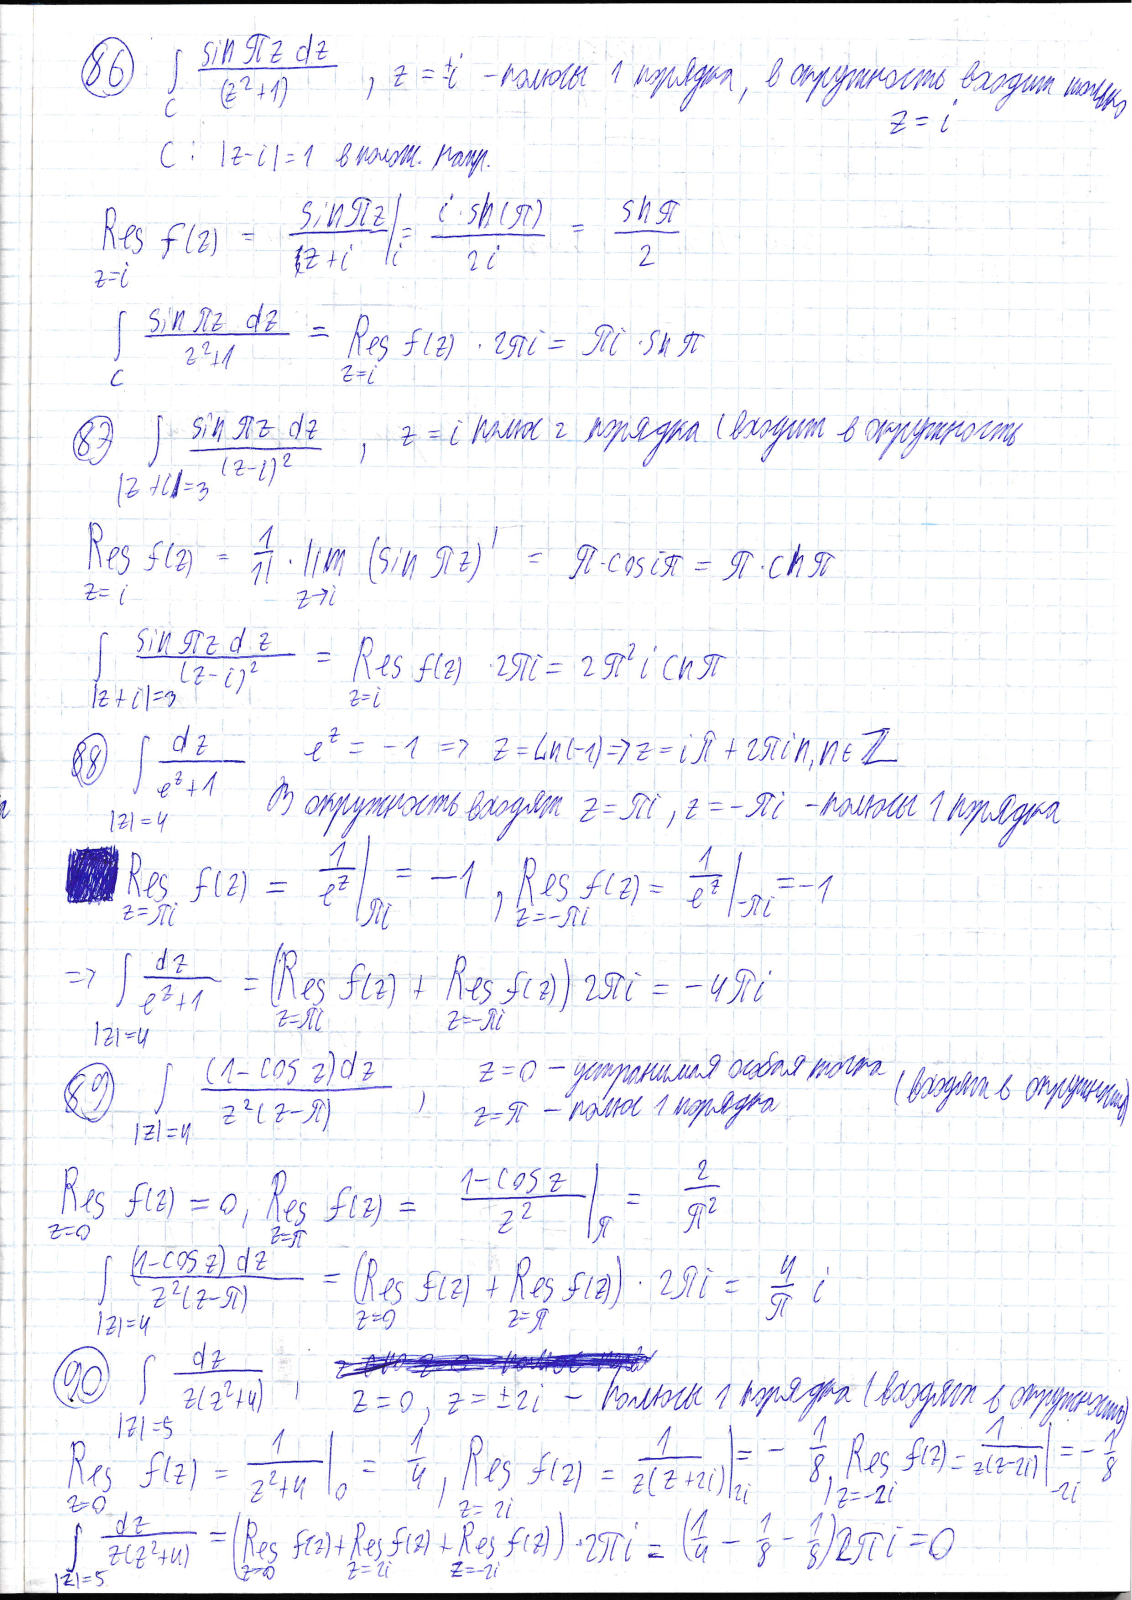 86 ∫_C sin πz dz / (z²+1) , z = ±i – полюсы 1 порядка, в окружность входит только z = i
C : |z-i| = 1 в полож. напр.
Res_{z=i} f(z) = sin πz / (z+i) |_i = i·sh(π) / 2i = sh π / 2
∫_C sin πz dz / z²+1 = Res_{z=i} f(z) · 2πi = πi · sh π
87 ∫_{|z+i|=3} sin πz dz / (z-i)² , z = i полюс 2 порядка (входит в окружность
Res_{z=i} f(z) = 1/1! · lim_{z→i} (sin πz)' = π·cos iπ = π·ch π
∫_{|z+i|=3} sin πz dz / (z-i)² = Res_{z=i} f(z) · 2πi = 2π² i ch π
88 ∫_{|z|=4} dz / e^z+1 e^z = -1 => z = Ln(-1) => z = iπ + 2πin, n ∈ ℤ
В окружность входят z = πi, z = -πi – полюсы 1 порядка
Res_{z=πi} f(z) = 1/e^z |_{πi} = -1 , Res_{z=-πi} f(z) = 1/e^z |_{-πi} = -1
=> ∫_{|z|=4} dz / e^z+1 = (Res_{z=πi} f(z) + Res_{z=-πi} f(z)) 2πi = -4πi
89 ∫_{|z|=4} (1-cos z)dz / z²(z-π) , z=0 – устранимая особая точка
z=π – полюс 1 порядка (входят в окружность)
Res_{z=0} f(z) = 0, Res_{z=π} f(z) = 1-cos z / z² |_π = 2/π²
∫_{|z|=4} (1-cos z) dz / z²(z-π) = (Res_{z=0} f(z) + Res_{z=π} f(z)) · 2πi = 4/π i
90 ∫_{|z|=5} dz / z(z²+4) , z=0, z = ±2i – полюсы 1 порядка (входят в окружность)
Res_{z=0} f(z) = 1/z²+4 |_0 = 1/4 , Res_{z=2i} f(z) = 1/z(z+2i) |_{2i} = -1/8 , Res_{z=-2i} f(z) = 1/z(z-2i) |_{-2i} = -1/8
∫_{|z|=5} dz / z(z²+4) = (Res_{z=0} f(z) + Res_{z=2i} f(z) + Res_{z=-2i} f(z)) · 2πi = (1/4 - 1/8 - 1/8) 2πi = 0